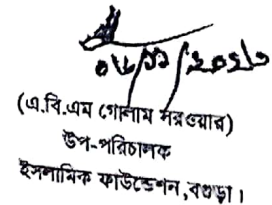 (এ.বি.এম গোলাম সরওয়ার)
উপ-পরিচালক
ইসলামিক ফাউন্ডেশন, বগুড়া।